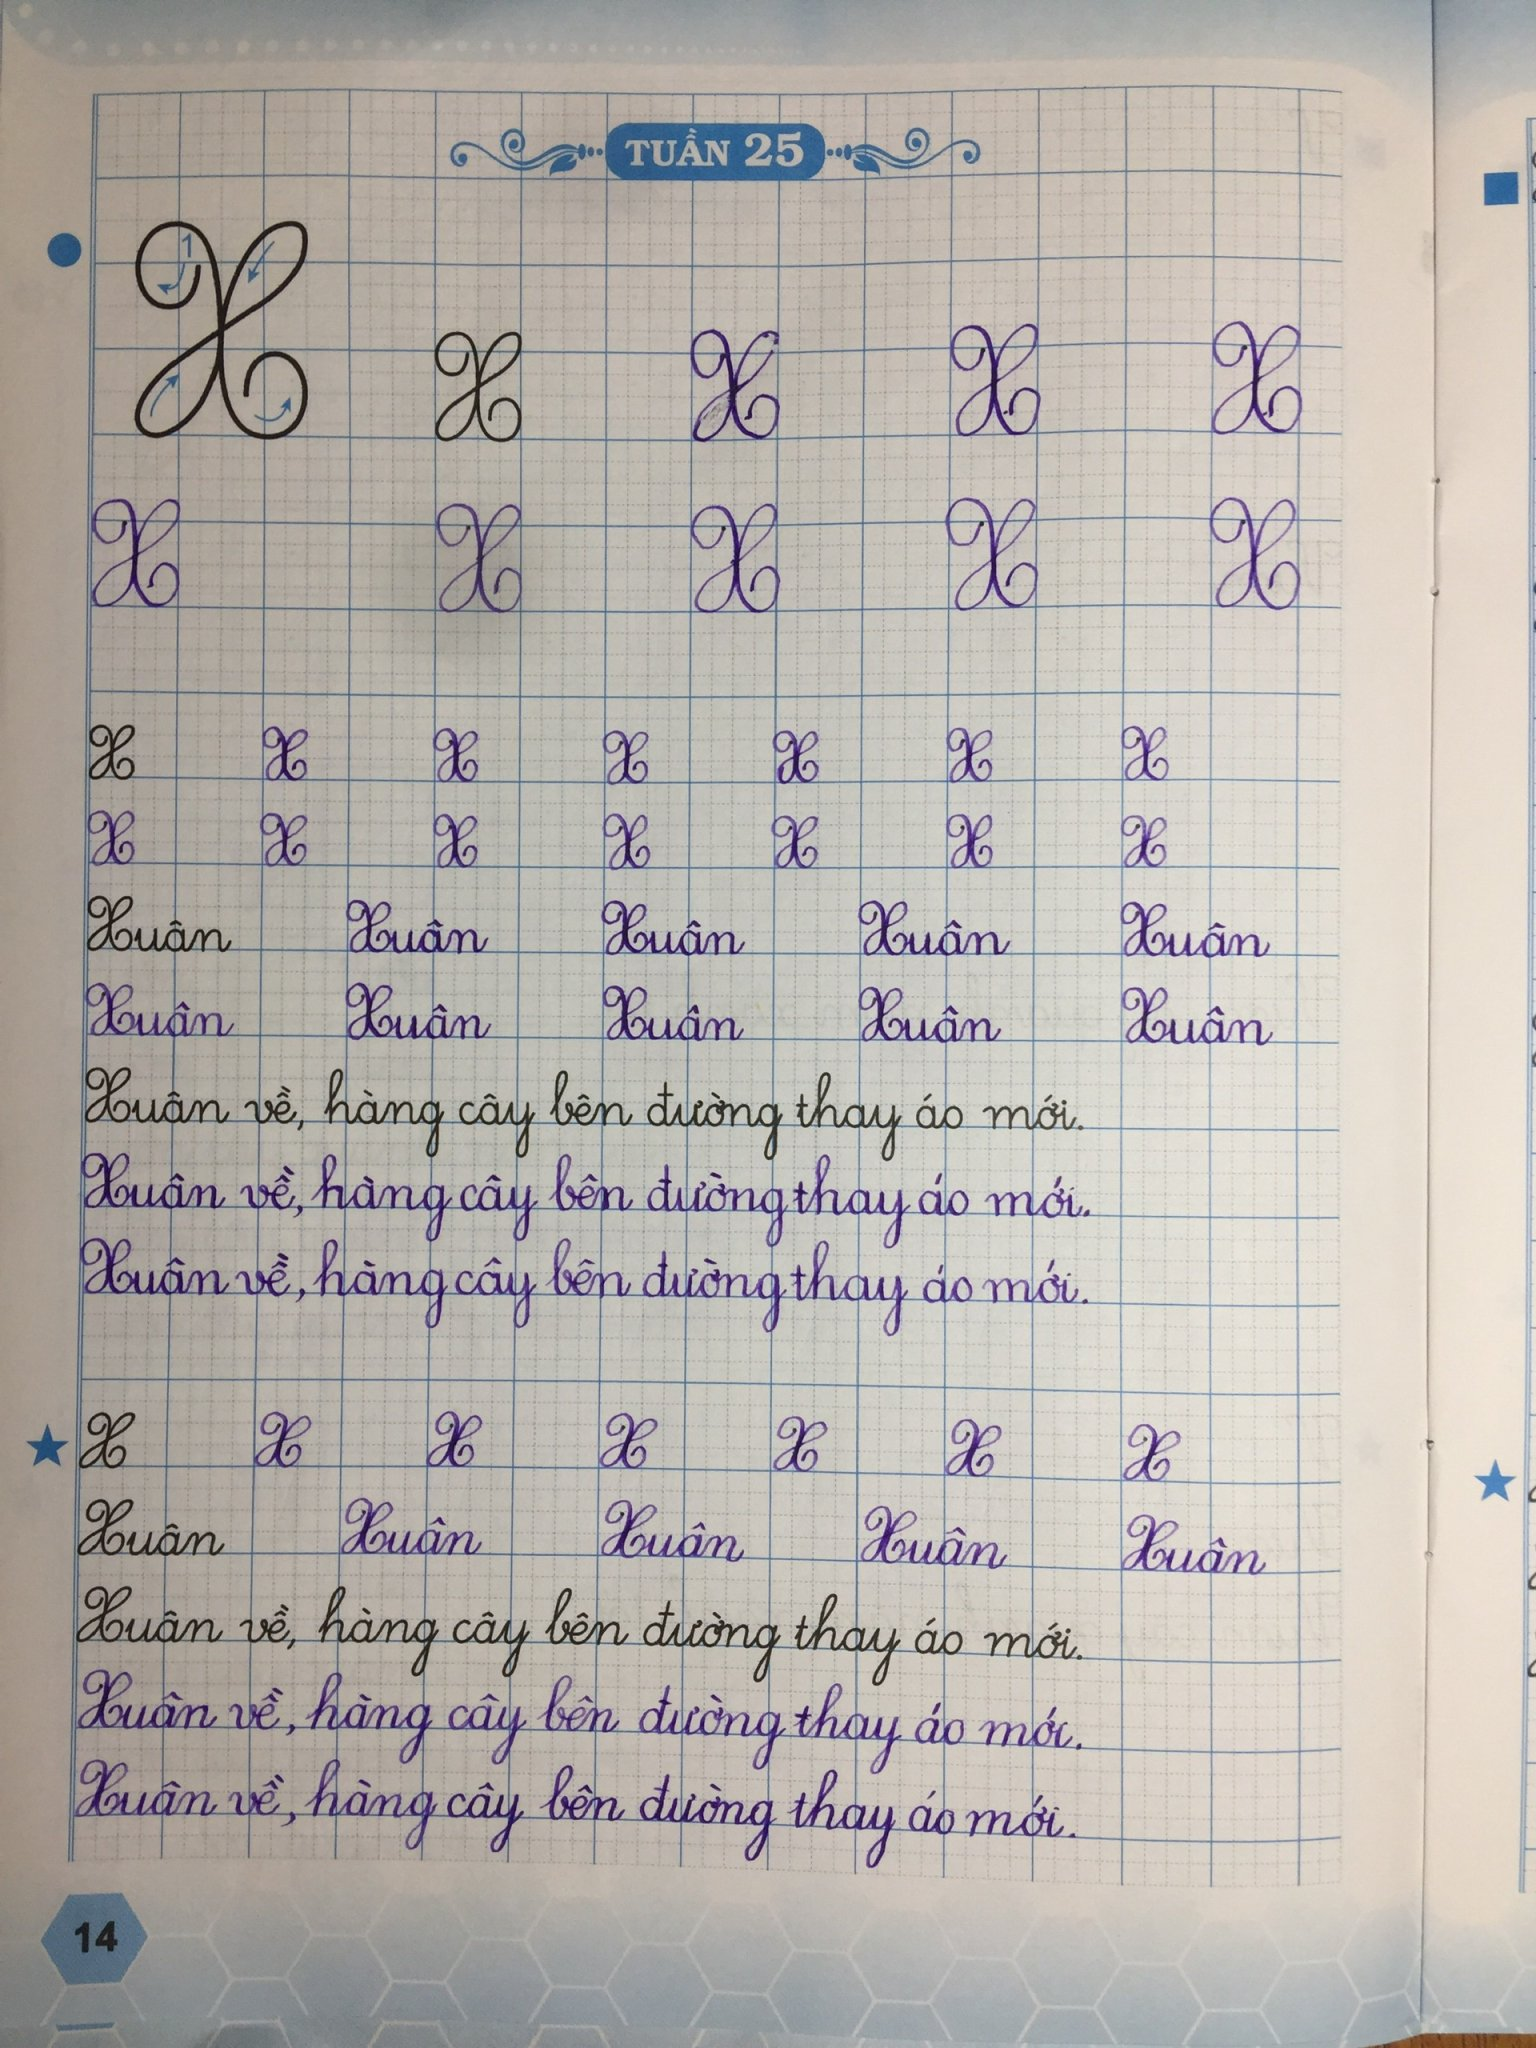 TUẦN 25
X X X X X
X X X X X
X X X X X X X
X X X X X X X
Xuân Xuân Xuân Xuân Xuân
Xuân Xuân Xuân Xuân Xuân
Xuân về, hàng cây bên đường thay áo mới.
Xuân về, hàng cây bên đường thay áo mới.
Xuân về, hàng cây bên đường thay áo mới.
X X X X X X X
Xuân Xuân Xuân Xuân Xuân
Xuân về, hàng cây bên đường thay áo mới.
Xuân về, hàng cây bên đường thay áo mới.
Xuân về, hàng cây bên đường thay áo mới.
14